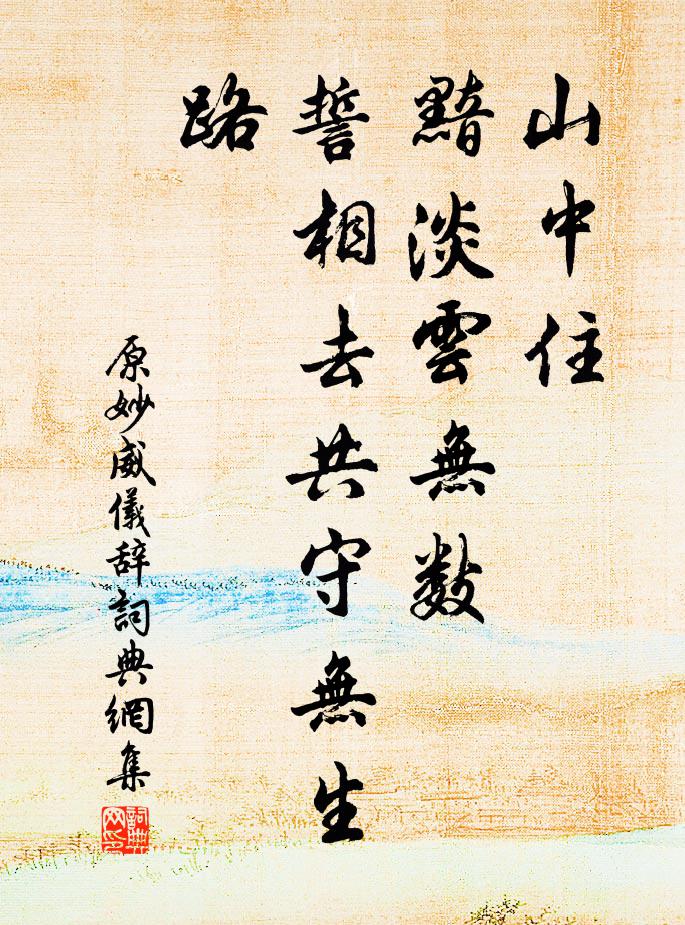 山中住
黯淡雲無数
誓相去共守無生
路
原妙威儀辞詞典網集
詞典
网印